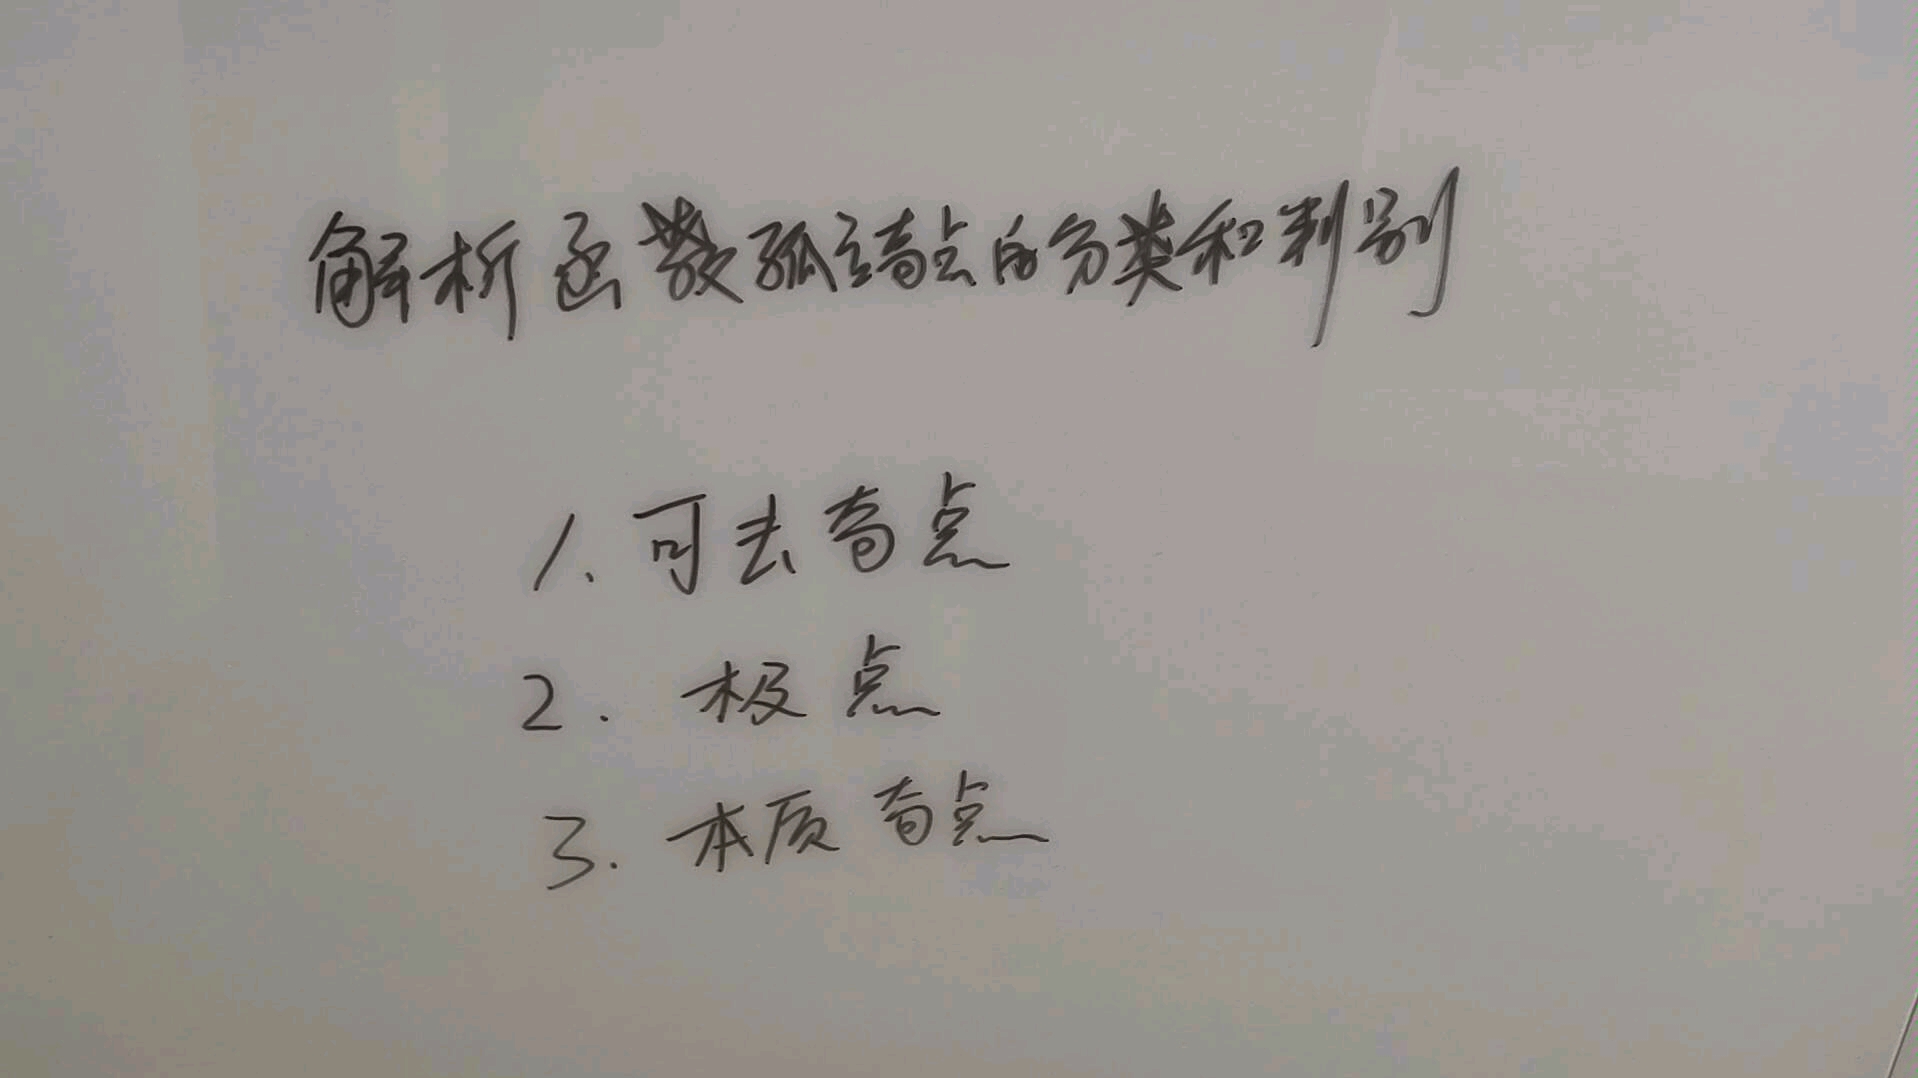 解析函数孤立奇点的分类和判别
1. 可去奇点
2. 极点
3. 本质奇点